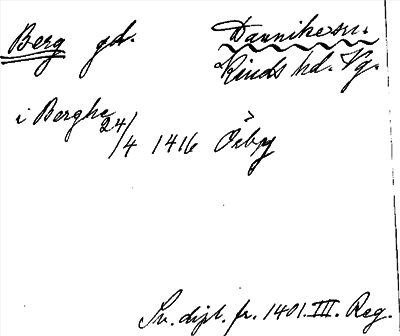 Berg gd. Dannike sn.
Kinds hd. Vg.
i Berghe 24/4 1416 Örby
Sv. dipl. fr. 1401. III. Reg.